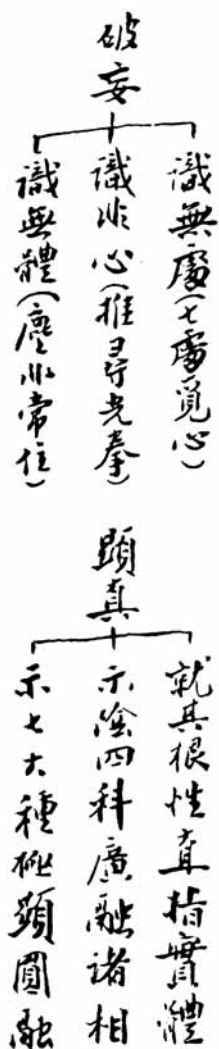 破妄
識無處(七處覓心)
識非心(推尋光拳)
識無體(塵非常住)
顯真
就其根性直指實體
示陰四科廣融諸相
示七大種極顯圓融